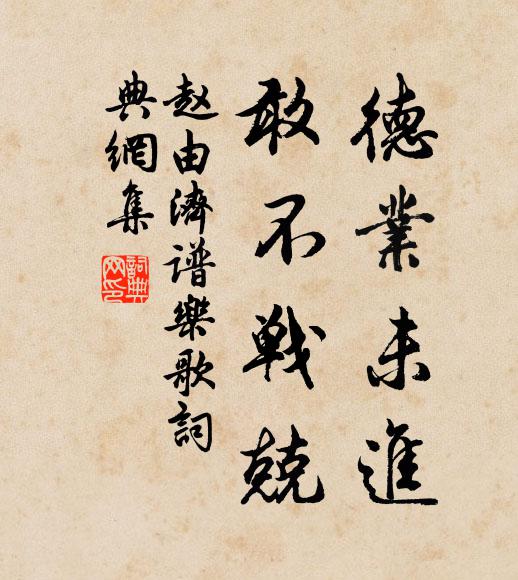 德業未進
敢不戰兢
赵由濟谱樂歌詞
典網集
詞典網印